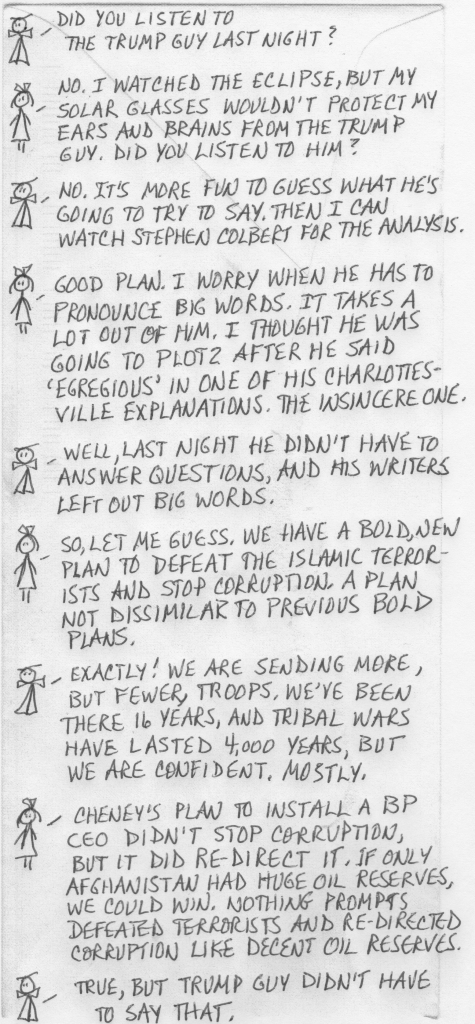 DID YOU LISTEN TO
THE TRUMP GUY LAST NIGHT?
NO. I WATCHED THE ECLIPSE, BUT MY
SOLAR GLASSES WOULDN'T PROTECT MY
EARS AND BRAINS FROM THE TRUMP
GUY. DID YOU LISTEN TO HIM?
NO. IT'S MORE FUN TO GUESS WHAT HE'S
GOING TO TRY TO SAY. THEN I CAN
WATCH STEPHEN COLBERT FOR THE ANALYSIS.
GOOD PLAN. I WORRY WHEN HE HAS TO
PRONOUNCE BIG WORDS. IT TAKES A
LOT OUT OF HIM. I THOUGHT HE WAS
GOING TO PLOTZ AFTER HE SAID
'EGREGIOUS' IN ONE OF HIS CHARLOTTES-
VILLE EXPLANATIONS. THE INSINCERE ONE.
WELL, LAST NIGHT HE DIDN'T HAVE TO
ANSWER QUESTIONS, AND HIS WRITERS
LEFT OUT BIG WORDS.
SO, LET ME GUESS. WE HAVE A BOLD, NEW
PLAN TO DEFEAT THE ISLAMIC TERROR-
ISTS AND STOP CORRUPTION. A PLAN
NOT DISSIMILAR TO PREVIOUS BOLD
PLANS.
EXACTLY! WE ARE SENDING MORE,
BUT FEWER, TROOPS. WE'VE BEEN
THERE 16 YEARS, AND TRIBAL WARS
HAVE LASTED 4,000 YEARS, BUT
WE ARE CONFIDENT. MOSTLY.
CHENEY'S PLAN TO INSTALL A BP
CEO DIDN'T STOP CORRUPTION,
BUT IT DID RE-DIRECT IT. IF ONLY
AFGHANISTAN HAD HUGE OIL RESERVES,
WE COULD WIN. NOTHING PROMPTS
DEFEATED TERRORISTS AND RE-DIRECTED
CORRUPTION LIKE DECENT OIL RESERVES.
TRUE, BUT TRUMP GUY DIDN'T HAVE
TO SAY THAT.